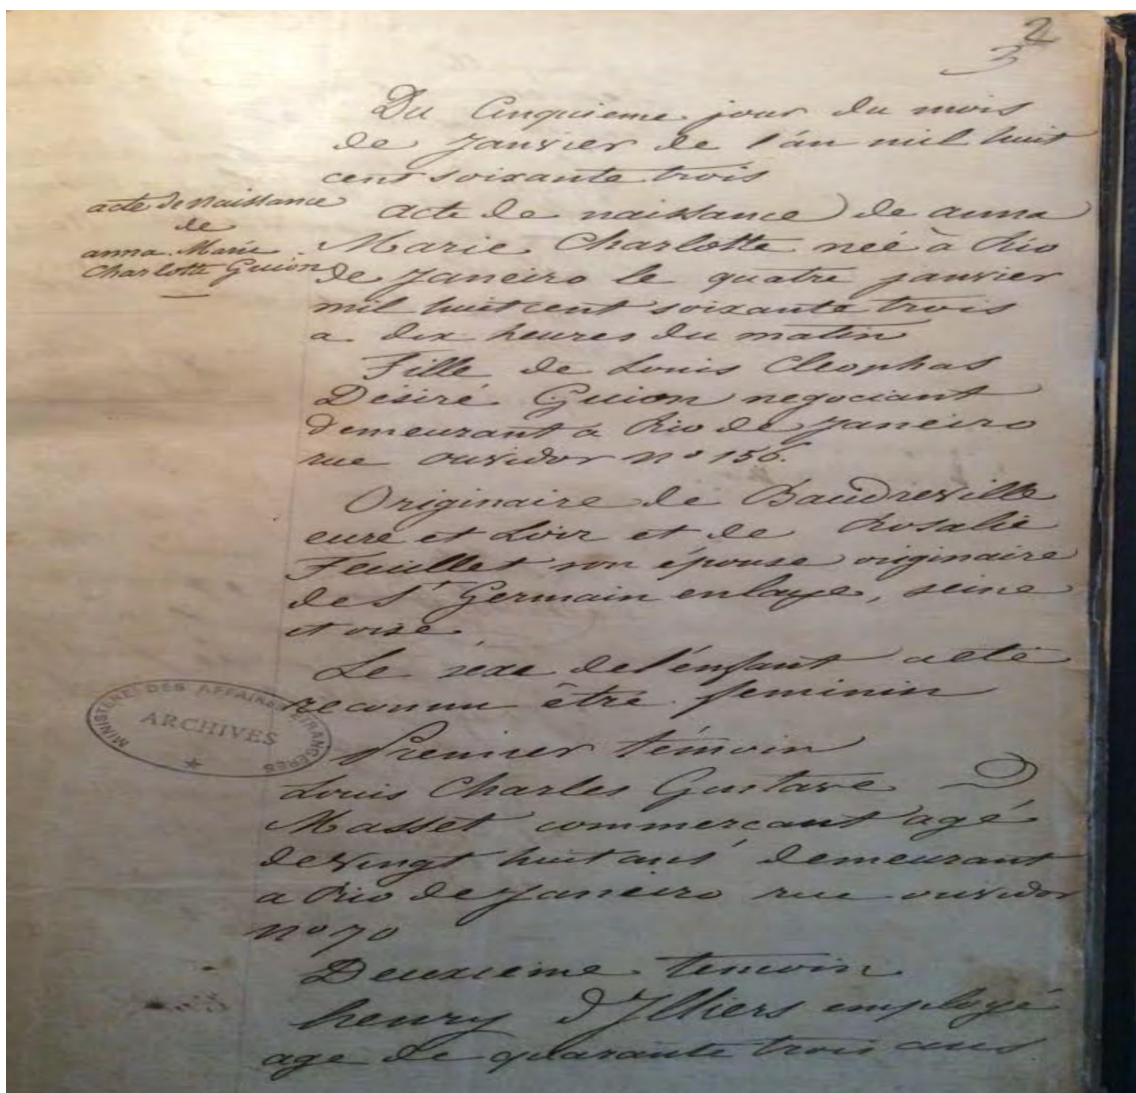 2
3
Du Cinquieme jour du mois
de Janvier de l'an mil huit
cent soixante trois
acte de naissance
de
anna Marie
Charlotte Guion
acte de naissance de anna
Marie Charlotte neé à Rio
de Janeiro le quatre janvier
mil huit cent soixante trois
a dix heures du matin
Fille de Louis Cleophas
Désiré Guion negociant
demeurant a Rio de Janeiro
rue ouvidor no 156.
Originaire de Baudreville
eure et Loir et de Rosalie
Feuillet son épouse originaire
de St Germain en laye, seine
et oise
Le sexe de l'enfant a eté
reconnu être feminin
MINISTERE DES AFFAIRES ETRANGERES
ARCHIVES
Premier témoin
Louis Charles Gustave
Masset commercant agé
de vingt huit ans demeurant
a Rio de Janeiro rue ouvidor
no 70
Deuxieme temoin
henry d'Illiers employé
age de quarante trois ans